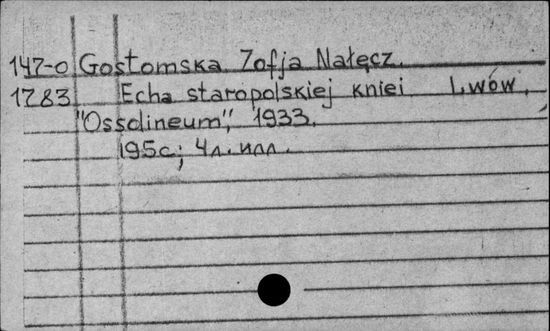 147-0 Gostomska Zofja Nałęcz.
1283 Echa staropolskiej kniei Lwów,
"Ossolineum", 1933.
195с; 4л. илл.